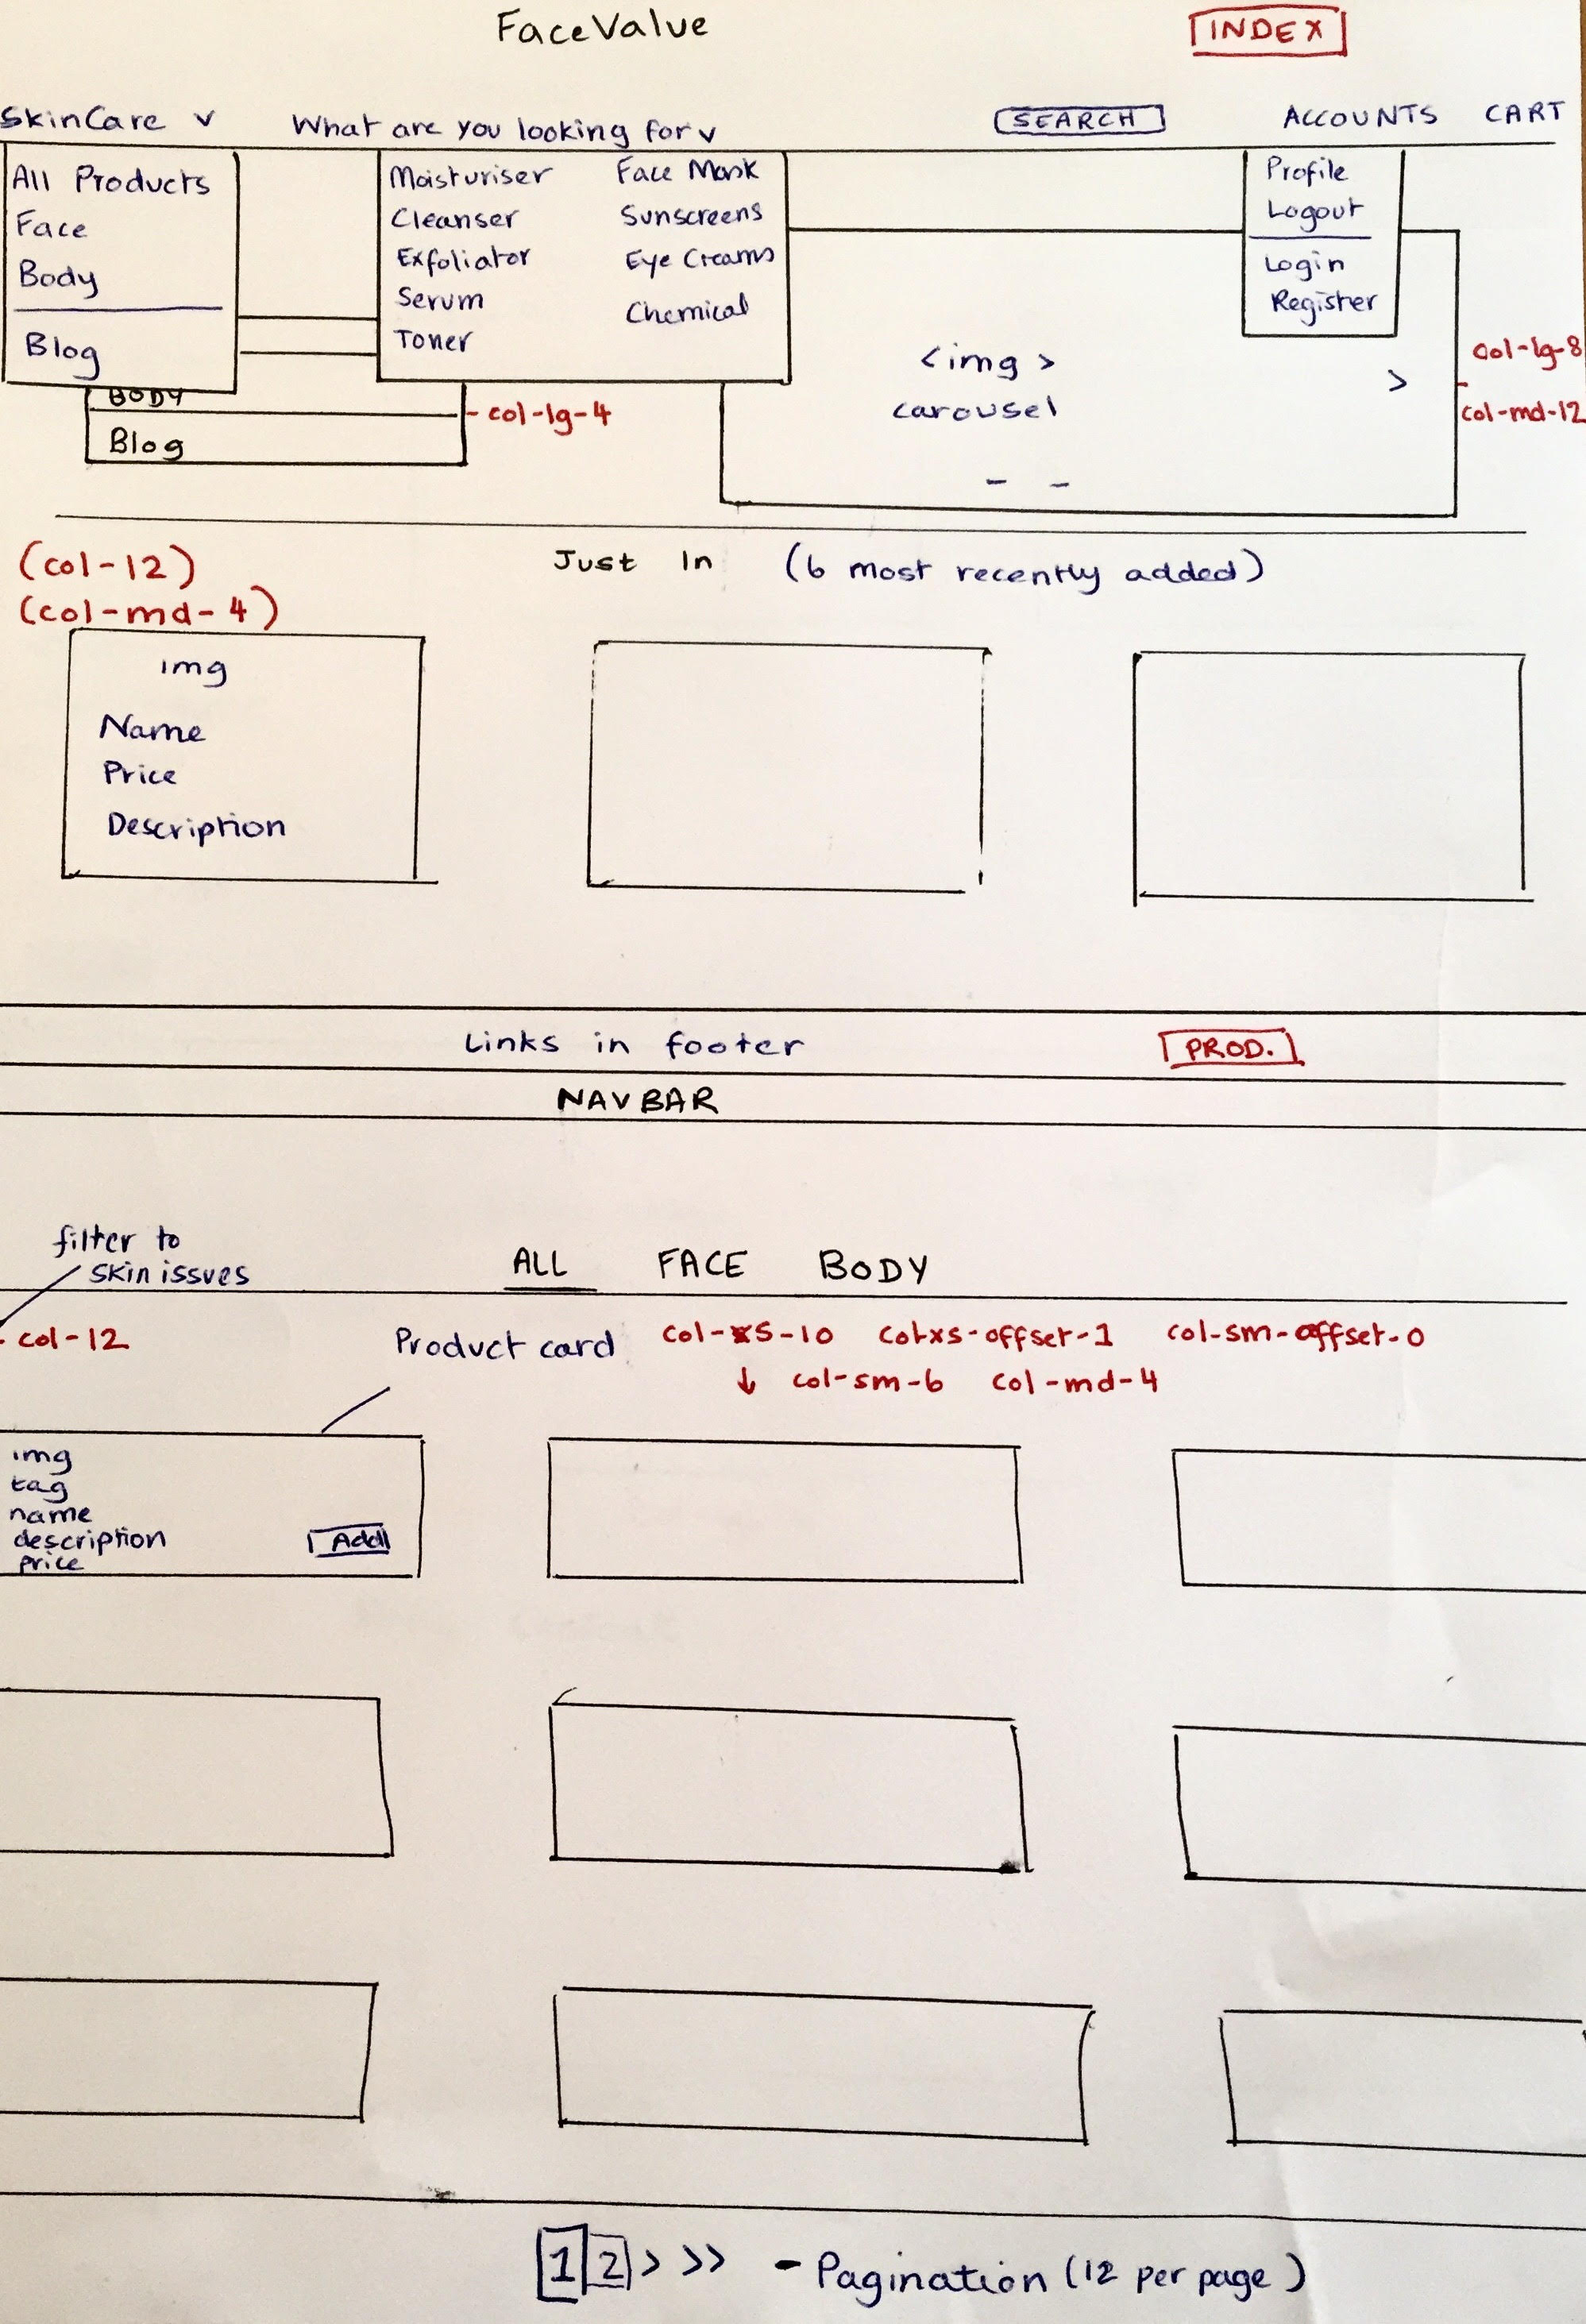 FaceValue
INDEX
SkinCare v What are you looking for v SEARCH ACCOUNTS CART
All Products
Face
Body
Blog
Moisturiser Face Mask
Cleanser Sunscreens
Exfoliator Eye Creams
Serum Chemical
Toner
Profile
Logout
Login
Register
BODY
Blog
col-lg-4
<img >
carousel
>
- -
col-lg-8
col-md-12
(col-12)
(col-md-4)
Just In (6 most recently added)
img
Name
Price
Description
Links in footer
PROD.
NAVBAR
filter to
skin issues
ALL FACE BODY
col-12
Product card
col-xs-10 colxs-offset-1 col-sm-offset-0
↓ col-sm-6 col-md-4
img
tag
name
description Add
price
1 2 > >> - Pagination (12 per page)